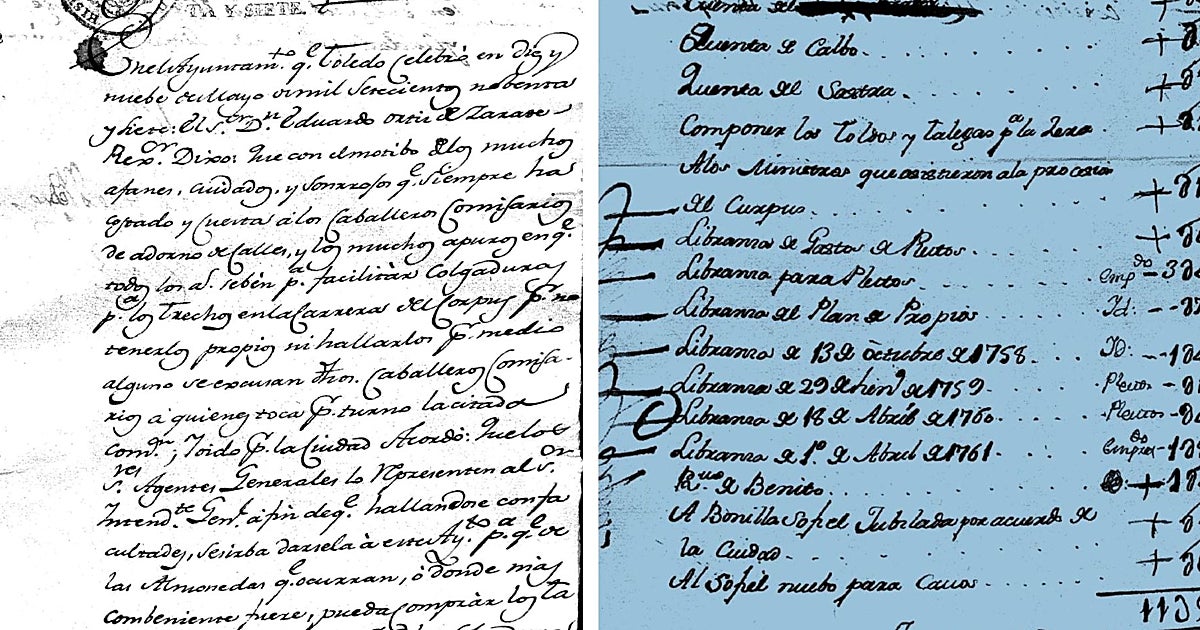 TA Y SIETE
En el Ayuntam.to q.e Toledo Celebró en diez y
nuebe de Mayo de mil setecientos nobenta
y siete: El S.or D.n Eduardo ortiz de Zarate
Rex.or Dixo: Que con el motibo de los muchos
afanes, cuidados, y sonrrojos q.e siempre ha
costado y cuesta a los Caballeros Comisarios
de adorno de Calles, y los muchos apuros en q.e
todos los a.s se bén p.a facilitár Colgaduras
p.a los trechos en la Carrera del Corpus p.r no
tenerlos propios ni hallarlos p.r medio
alguno se excusan dhos. Caballeros Comisa-
rios a quienes toca p.r turno la citada
com.on; Y oido p.r la Ciudad Acordó: Que los
S.res Agentes Generales lo Representen al S.or
Intend.te Gen.l á fin de q.e hallandose con fa
cultades, se sirba darsela à este Ay.to p.a q.e de
las Almonedas q.e ocurran, ò donde mas
combeniente fuere, pueda comprár los ta
Quenta del
Quenta de Calbo
Quenta del Sastre
Componer los Toldos y Talegas p.a la
A los Ministros que asistieron a la procesion
del Corpus
Libranza de Gastos de Pleitos
Libranza para Pleitos emp.do
Libranza del Plan de Propios Id:
Libranza de 13 de octubre de 1758 ID:
Libranza de 29 de de 1759 Pleitos
Libranza de 18 de Abril de 1760 Pleitos
Libranza de 1.º de Abril de 1761
de Benito
A Bonilla Sofiel Jubilado por acuerdo de
la Ciudad
Al Sofiel nuebo para
113